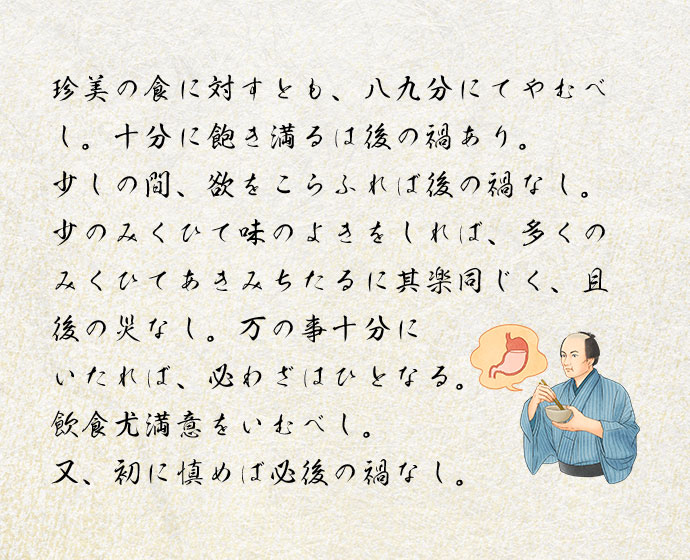 珍美の食に対すとも、八九分にてやむべ
し。十分に飽き満るは後の禍あり。
少しの間、欲をこらふれば後の禍なし。
少のみくひて味のよきをしれば、多くの
みくひてあきみちたるに其楽同じく、且
後の災なし。万の事十分に
いたれば、必わざはひとなる。
飲食尤満意をいむべし。
又、初に慎めば必後の禍なし。